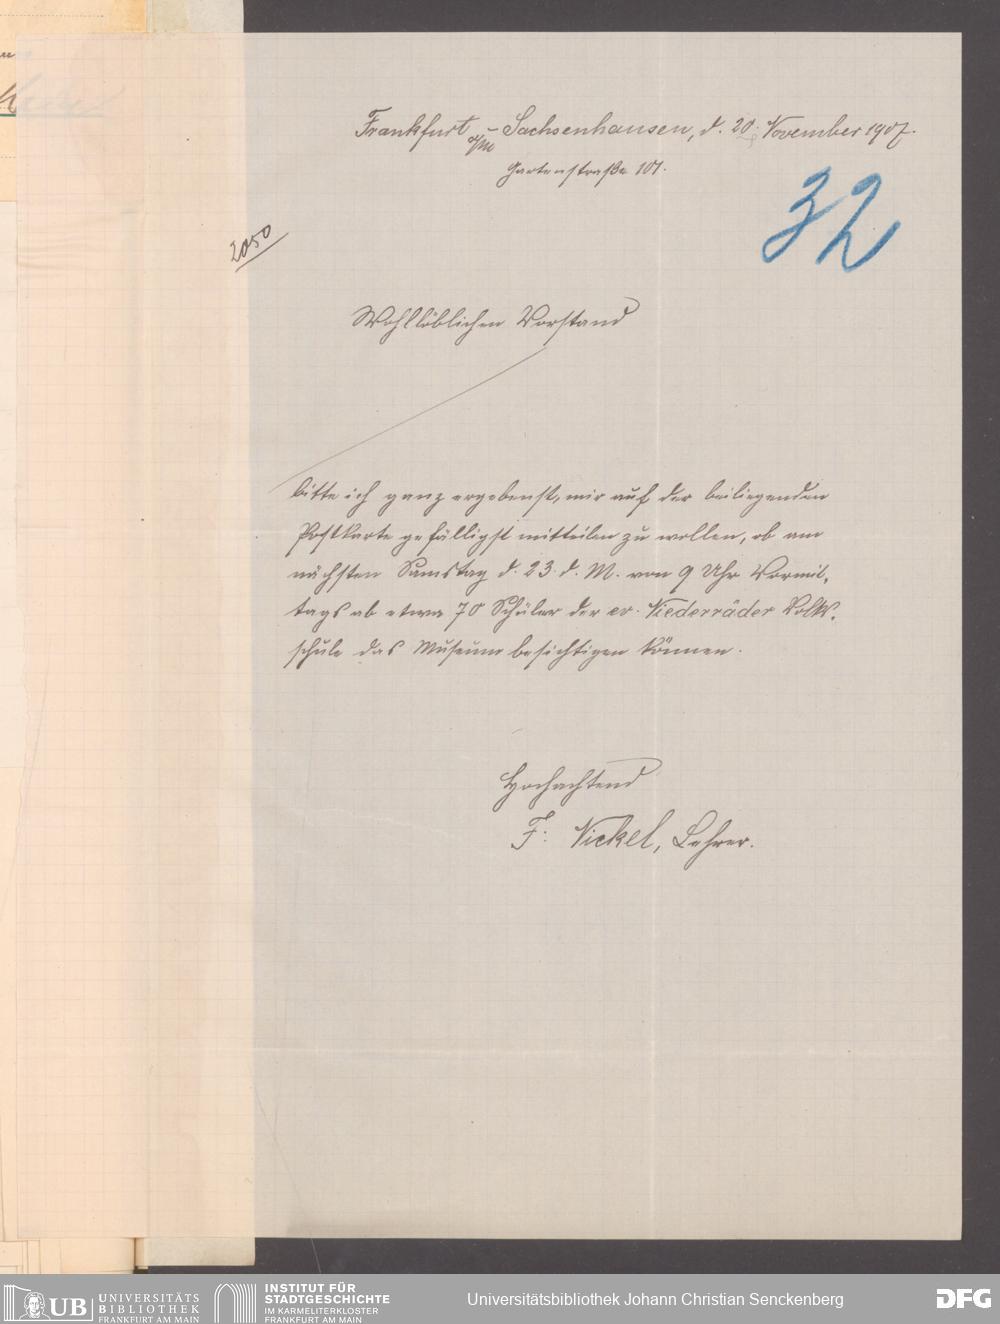 Frankfurt a/M – Sachsenhausen, d. 20. November 1907.
Gartenstraße 101.
32
2050
Wohllöblichen Vorstand
bitte ich ganz ergebenst, mir auf der beiliegenden
Postkarte gefälligst mitteilen zu wollen, ob am
nächsten Samstag d. 23. d. M. von 9 Uhr Vormit-
tags ab etwa 70 Schüler der ev. Niederräder Volks-
schule das Museum besichtigen können.
Hochachtend
F. Nickel, Lehrer.
UB UNIVERSITÄTS
BIBLIOTHEK
FRANKFURT AM MAIN
INSTITUT FÜR
STADTGESCHICHTE
IM KARMELITERKLOSTER
FRANKFURT AM MAIN
Universitätsbibliothek Johann Christian Senckenberg
DFG